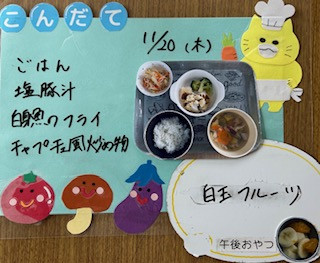 こんだて
11/20(木)
ごはん
塩豚汁
白身魚のフライ
チャプチェ風炒め物
白玉フルーツ
午後おやつ